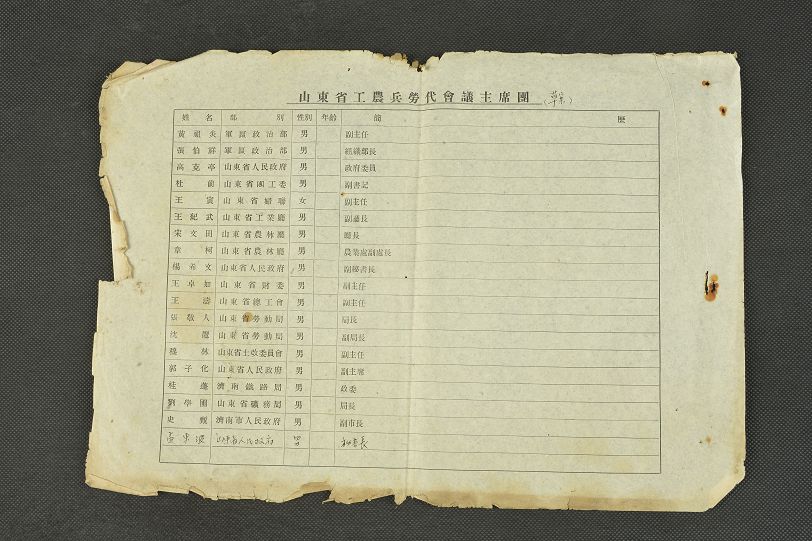 山東省工農兵勞代會議主席團(草案)
姓名 部別 性別 年齡 簡 歷
黃祖炎 軍區政治部 男 副主任
張伯祥 軍區政治部 男 組織部長
高克亭 山東省人民政府 男 政府委員
杜前 山東省國工委 男 副書記
王寅 山東省婦聯 女 副主任
王紀武 山東省工業廳 男 副廳長
宋文田 山東省農林廳 男 廳長
章柯 山東省農林廳 男 農業處副處長
楊希文 山東省人民政府 男 副秘書長
王卓如 山東省財委 男 副主任
王濤 山東省總工會 男 副主任
張敬人 山東省勞動局 男 局長
沈 山東省勞動局 男 副局長
穆林 山東省土改委員會 男 副主任
郭子化 山東省人民政府 男 副主席
桂蓬 濟南鐵路局 男 政委
劉學圃 山東省礦務局 男 局長
史甄 濟南市人民政府 男 副市長
孟東波 山東省人民政府 男 秘書長